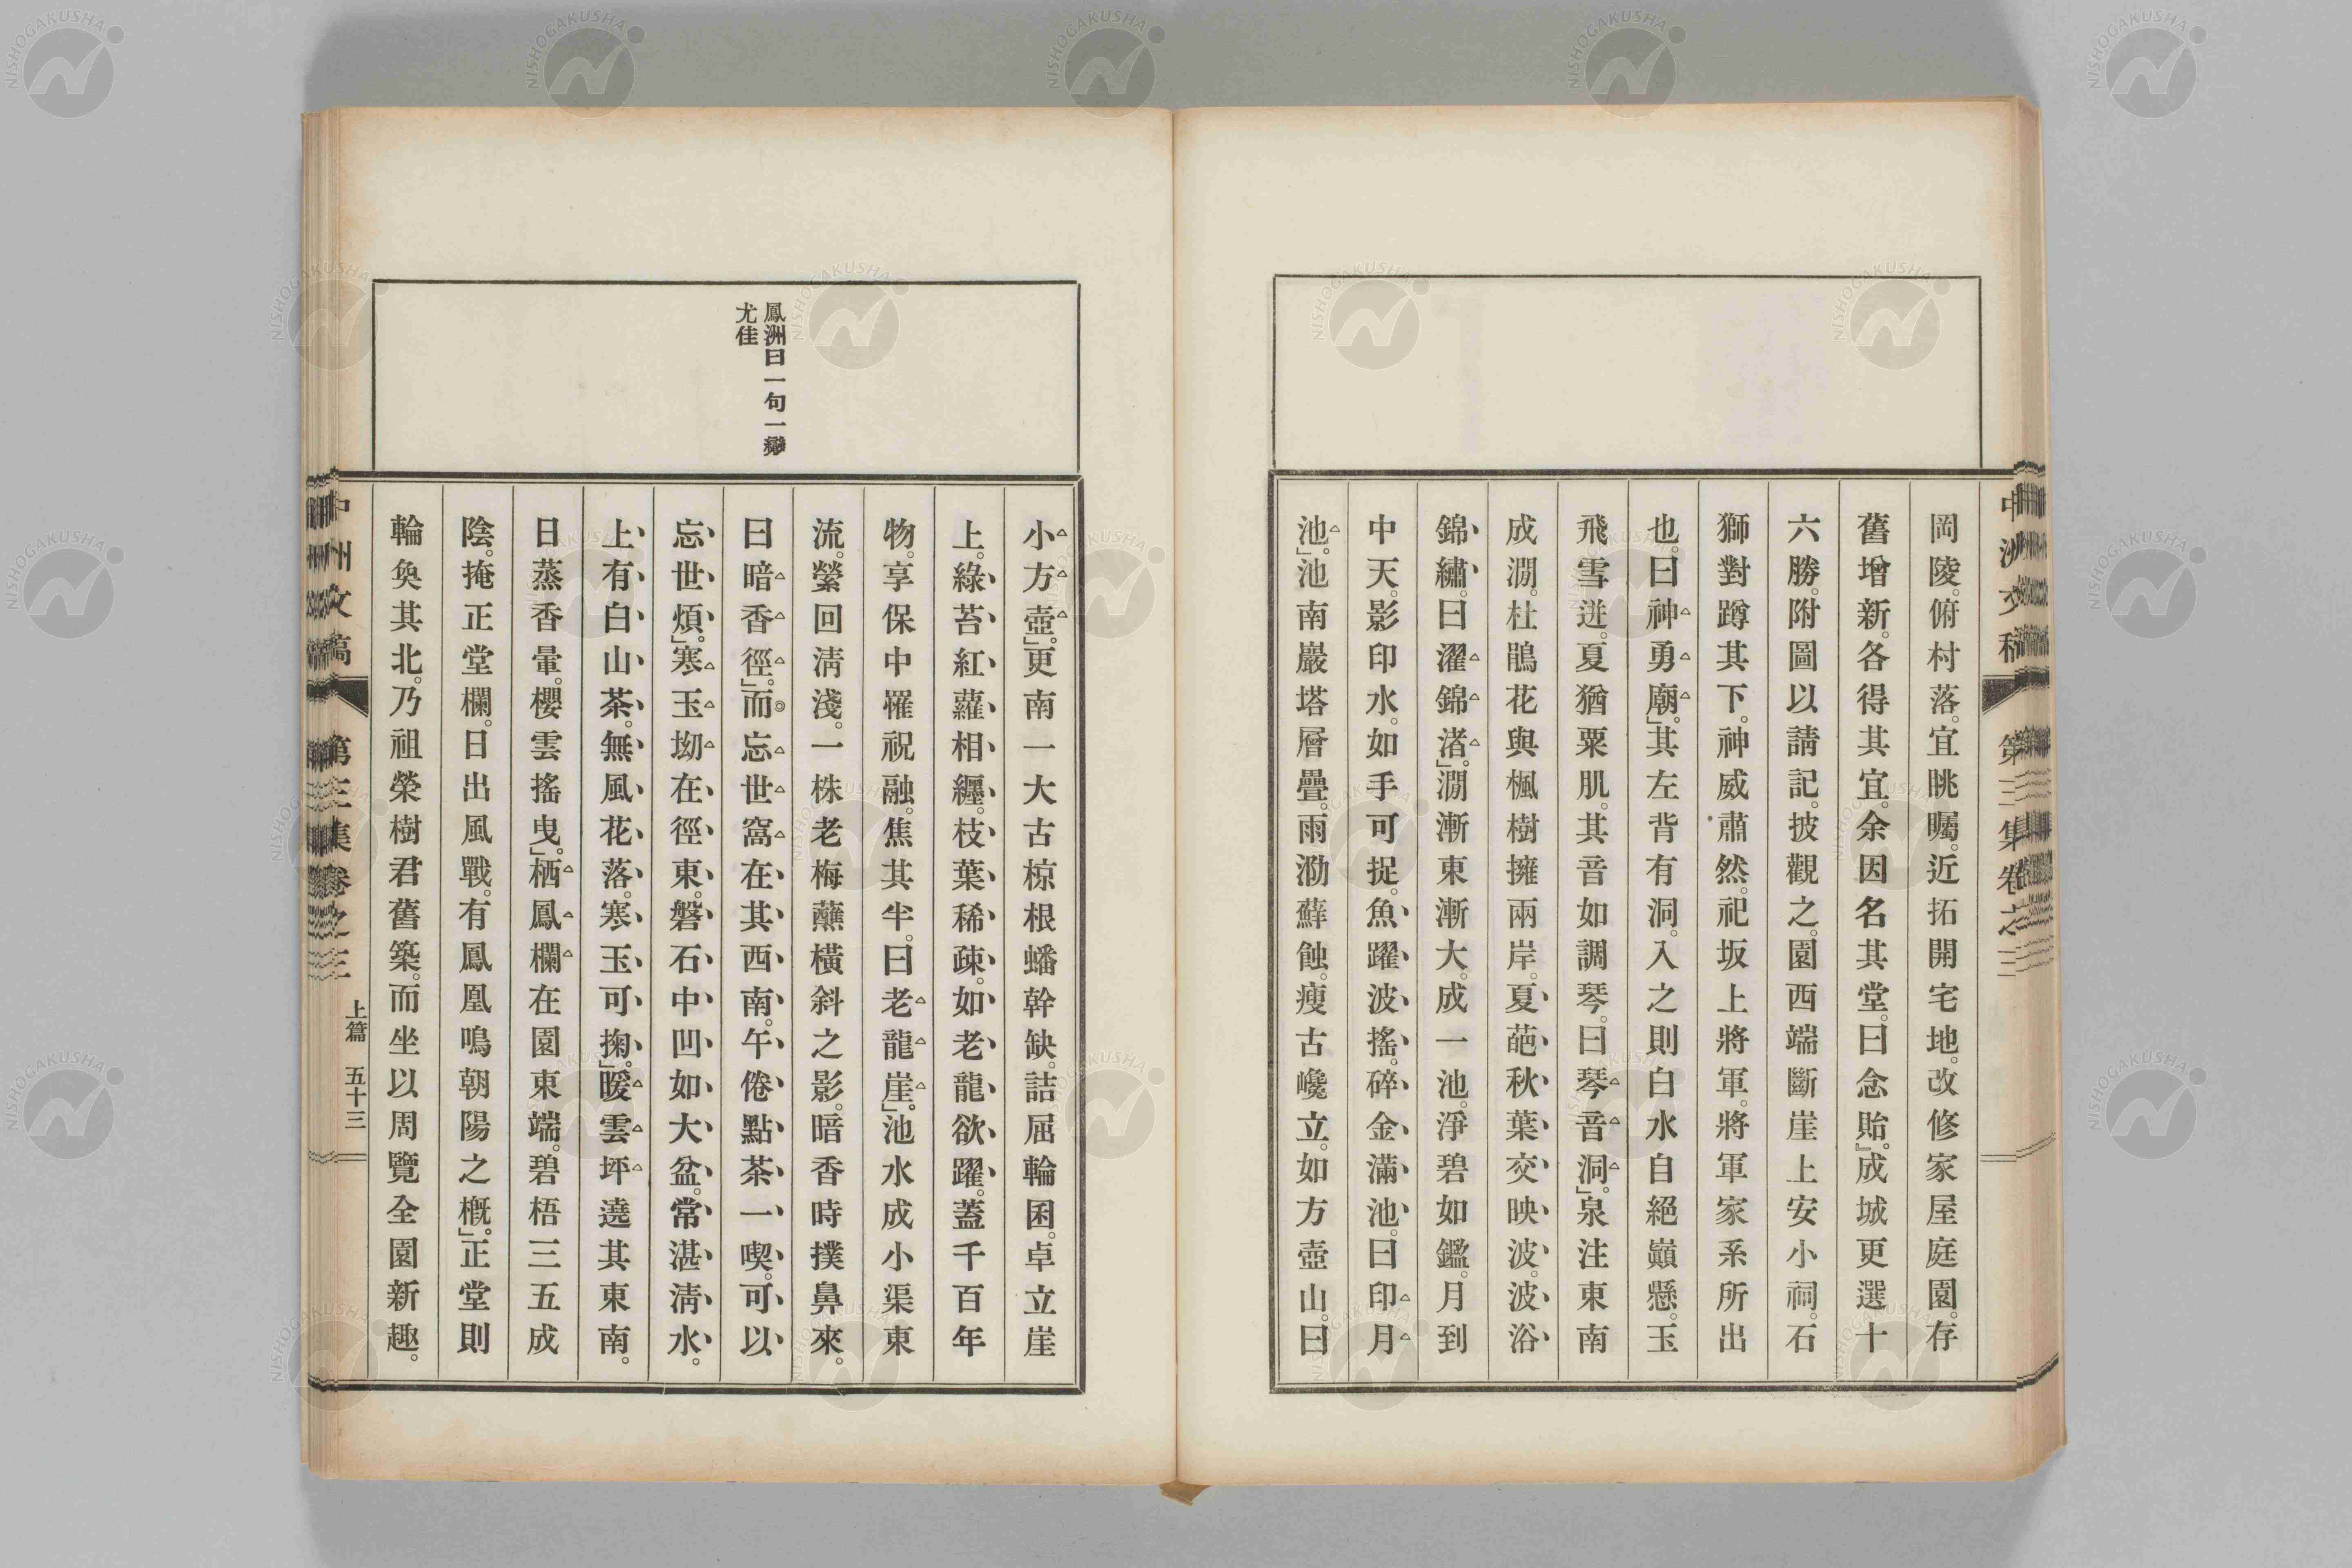 中洲文稿 第三集卷之三
岡陵。俯村落。宜眺矚。近拓開宅地。改修家屋庭園。存
舊增新。各得其宜。余因名其堂。曰念貽。」成城更選十
六勝。附圖以請記。披觀之。園西端斷崖上安小祠。石
獅對蹲其下。神威肅然。祀坂上將軍。將軍家系所出
也。曰神勇廟。」其左背有洞。入之則白水自絕巓懸。玉
飛雪迸。夏猶粟肌。其音如調琴。曰琴音洞。」泉注東南
成澗。杜鵑花與楓樹擁兩岸。夏葩秋葉交映波。波浴
錦繡。曰濯錦渚。」澗漸東漸大。成一池。淨碧如鑑。月到
中天。影印水。如手可捉。魚躍波搖。碎金滿池。曰印月
池。」池南巖塔層疊。雨泐蘚蝕。瘦古巉立。如方壺山。曰
小方壺。」更南一大古椋根蟠幹缺。詰屈輪囷。卓立崖
上。綠苔紅蘿相纒。枝葉稀疎。如老龍欲躍。蓋千百年
物。享保中罹祝融。焦其半。曰老龍崖。」池水成小渠東
流。縈回淸淺。一株老梅蘸橫斜之影。暗香時撲鼻來。
曰暗香徑。」而忘世窩在其西南。午倦點茶一喫。可以
忘世煩。」寒玉坳在徑東。磐石中凹如大盆。常湛淸水。
上有白山茶。無風花落。寒玉可掬。」暖雲坪遶其東南。
日蒸香暈。櫻雲搖曳。」栖鳳欄在園東端。碧梧三五成
陰。掩正堂欄。日出風戰。有鳳凰鳴朝陽之槪。」正堂則
輪奐其北。乃祖榮樹君舊築。而坐以周覽全園新趣。
鳳洲曰一句一變
尤佳
中洲文稿 第三集卷之三 上篇 五十三
NISHOGAKUSHA